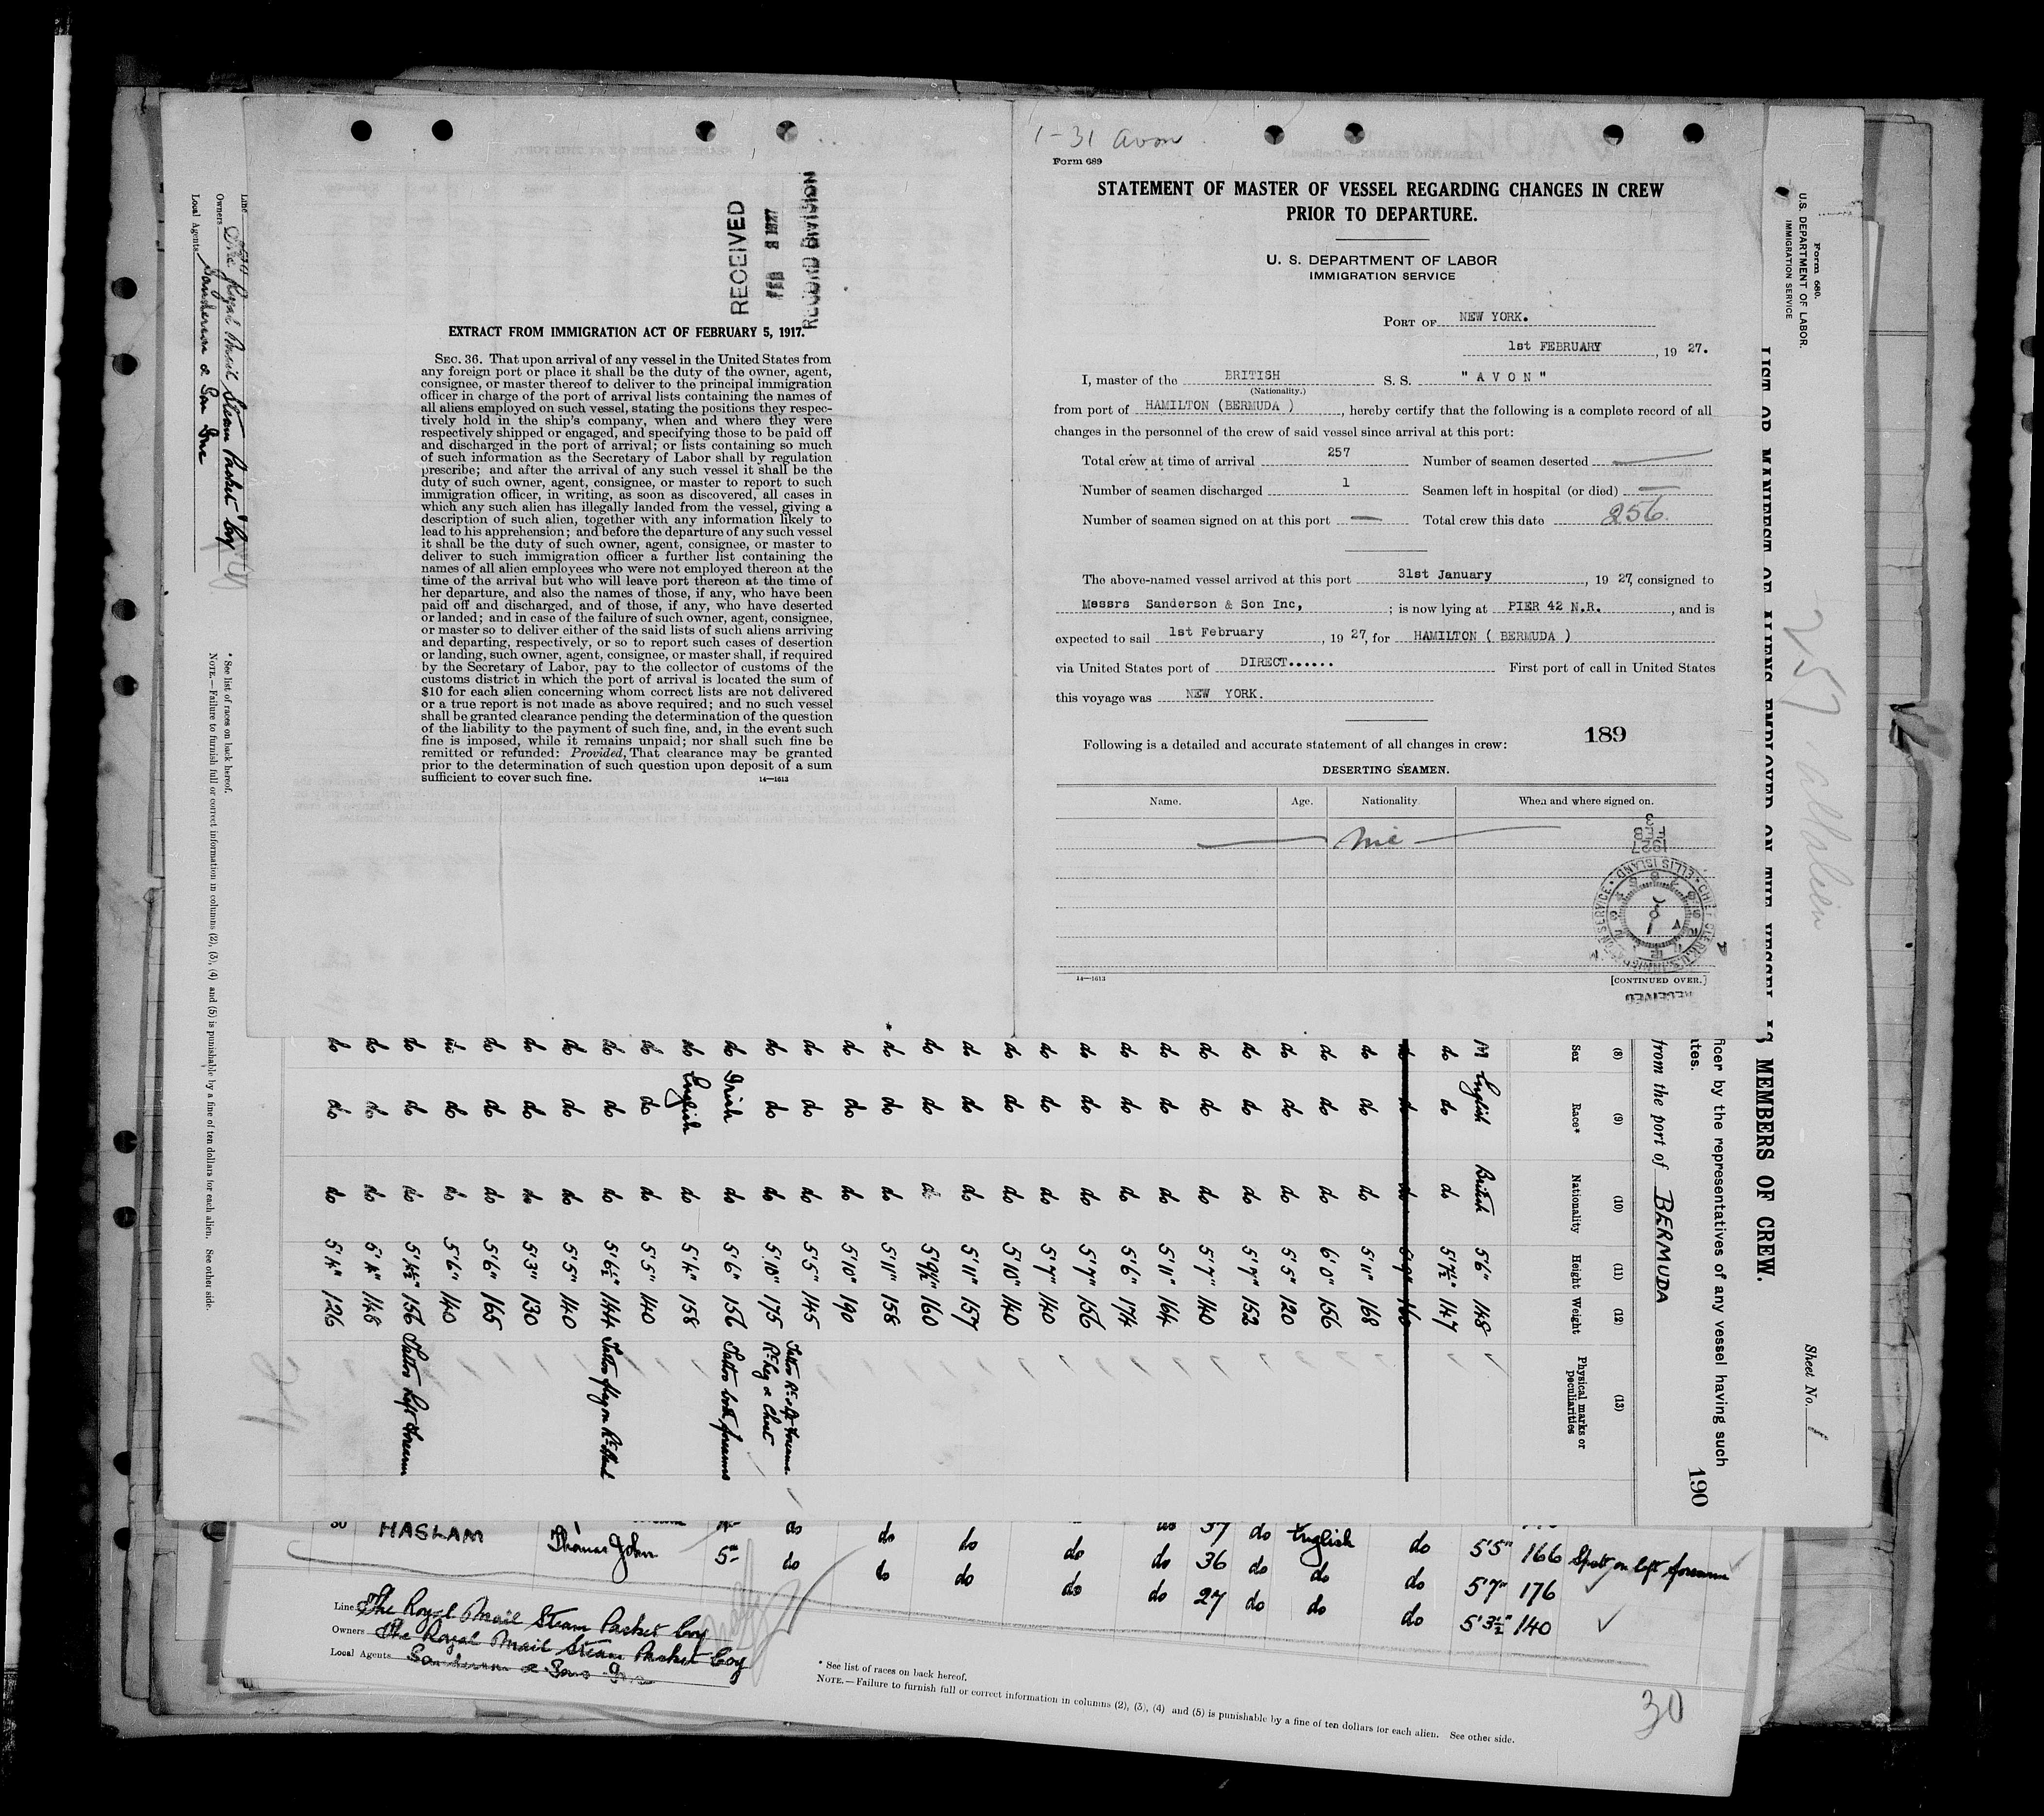 1-31 Avon
Form 689
STATEMENT OF MASTER OF VESSEL REGARDING CHANGES IN CREW
PRIOR TO DEPARTURE.
U. S. DEPARTMENT OF LABOR
IMMIGRATION SERVICE
PORT OF NEW YORK.
1st FEBRUARY, 19 27.
I, master of the BRITISH S. S. "AVON"
(Nationality.)
from port of HAMILTON (BERMUDA ), hereby certify that the following is a complete record of all
changes in the personnel of the crew of said vessel since arrival at this port:
Total crew at time of arrival 257 Number of seamen deserted —
Number of seamen discharged 1 Seamen left in hospital (or died) —
Number of seamen signed on at this port — Total crew this date 256.
The above-named vessel arrived at this port 31st January, 19 27, consigned to
Messrs Sanderson & Son Inc, ; is now lying at PIER 42 N.R. , and is
expected to sail 1st February, 19 27, for HAMILTON ( BERMUDA )
via United States port of DIRECT...... First port of call in United States
this voyage was NEW YORK.
189
Following is a detailed and accurate statement of all changes in crew:
DESERTING SEAMEN.
Name. Age. Nationality. When and where signed on.
— nil —
14—1613
[CONTINUED OVER.]
3
FEB
1927
CHIEF CLERK U.S. IMMIGRATION SERVICE • ELLIS ISLAND •
RECEIVED
RECEIVED
FEB 3 1927
RECORD DIVISION
EXTRACT FROM IMMIGRATION ACT OF FEBRUARY 5, 1917.
SEC. 36. That upon arrival of any vessel in the United States from
any foreign port or place it shall be the duty of the owner, agent,
consignee, or master thereof to deliver to the principal immigration
officer in charge of the port of arrival lists containing the names of
all aliens employed on such vessel, stating the positions they respec-
tively hold in the ship's company, when and where they were
respectively shipped or engaged, and specifying those to be paid off
and discharged in the port of arrival; or lists containing so much
of such information as the Secretary of Labor shall by regulation
prescribe; and after the arrival of any such vessel it shall be the
duty of such owner, agent, consignee, or master to report to such
immigration officer, in writing, as soon as discovered, all cases in
which any such alien has illegally landed from the vessel, giving a
description of such alien, together with any information likely to
lead to his apprehension; and before the departure of any such vessel
it shall be the duty of such owner, agent, consignee, or master to
deliver to such immigration officer a further list containing the
names of all alien employees who were not employed thereon at the
time of the arrival but who will leave port thereon at the time of
her departure, and also the names of those, if any, who have been
paid off and discharged, and of those, if any, who have deserted
or landed; and in case of the failure of such owner, agent, consignee,
or master so to deliver either of the said lists of such aliens arriving
and departing, respectively, or so to report such cases of desertion
or landing, such owner, agent, consignee, or master shall, if required
by the Secretary of Labor, pay to the collector of customs of the
customs district in which the port of arrival is located the sum of
$10 for each alien concerning whom correct lists are not delivered
or a true report is not made as above required; and no such vessel
shall be granted clearance pending the determination of the question
of the liability to the payment of such fine, and, in the event such
fine is imposed, while it remains unpaid; nor shall such fine be
remitted or refunded: Provided, That clearance may be granted
prior to the determination of such question upon deposit of a sum
sufficient to cover such fine.
14—1613
Form 680.
U.S. DEPARTMENT OF LABOR.
IMMIGRATION SERVICE
Sheet No. 1
257
LIST OR MANIFEST OF ALIENS EMPLOYED ON THE VESSEL AS MEMBERS OF CREW.
ficer by the representatives of any vessel having such
ates.
190
from the port of BERMUDA
(8) (9) (10) (11) (12) (13)
Sex Race* Nationality Height Weight Physical marks or peculiarities
M English British 5'6" 148
do do do 5'7½" 147
do do do 5'9" 160
do do do 5'11" 168
do do do 6'0" 156
do do do 5'5" 120
do do do 5'7" 152
do do do 5'7" 140
do do do 5'11" 164
do do do 5'6" 174
do do do 5'7" 156
do do do 5'7" 140
do do do 5'10" 140
do do do 5'11" 157
do do do 5'9½" 160
do do do 5'11" 158
do do do 5'10" 190
do do do 5'5" 145
do do do 5'10" 175 Rt Leg & Chest
do Irish do 5'6" 156 Tattoo both forearms
do English do 5'4" 158
do do do 5'5" 140
do do do 5'6½" 144
do do do 5'5" 140
do do do 5'3" 130
do do do 5'6" 165
do do do 5'6" 140
do do do 5'4½" 156 Tattoo left forearm
do do do 5'4" 148
do do do 5'4" 126
Line
Owners The Royal Mail Steam Packet Coy
Local Agents Sanderson & Son Inc
* See list of races on back hereof.
NOTE.—Failure to furnish full or correct information in columns (2), (3), (4) and (5) is punishable by a fine of ten dollars for each alien. See other side.
30 HASLAM Thomas John
do do do do do 37 do English do 5'5" 166 Spot on left forearm
5 do do do do do 36 do do do 5'7" 176
do do 27 do do do 5'3½" 140
Line The Royal Mail Steam Packet Coy
Owners The Royal Mail Steam Packet Coy
Local Agents Sanderson & Sons Inc
* See list of races on back hereof.
NOTE.—Failure to furnish full or correct information in columns (2), (3), (4) and (5) is punishable by a fine of ten dollars for each alien. See other side.
30